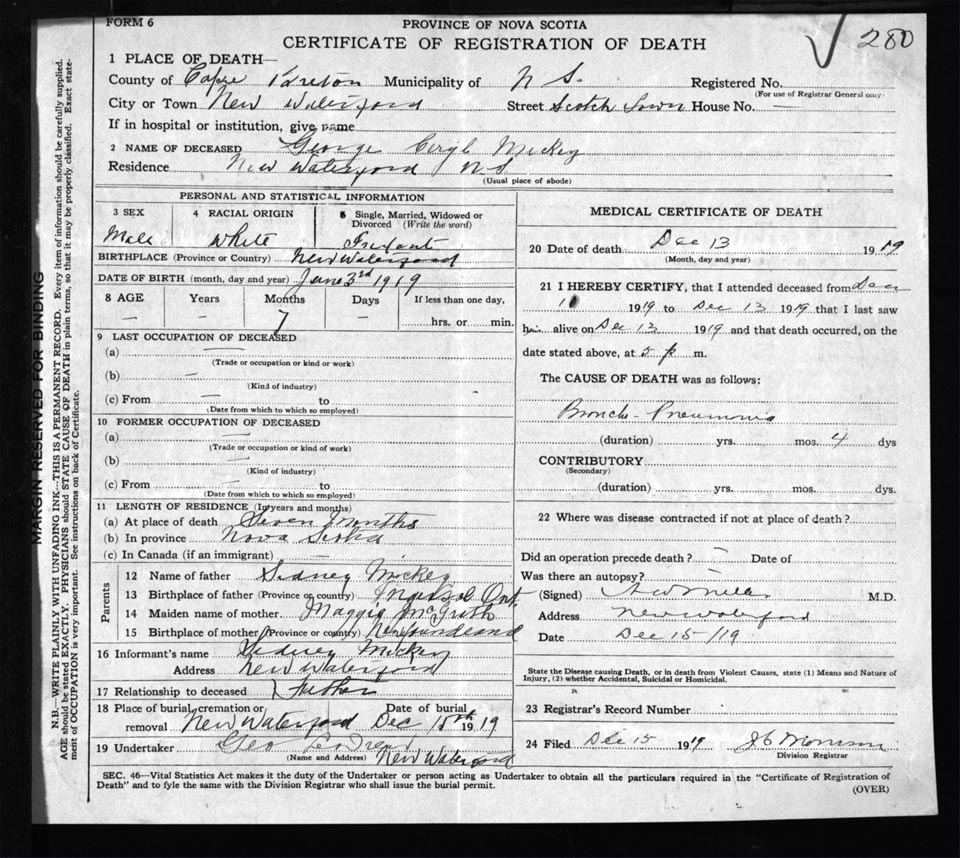 FORM 6
280
PROVINCE OF NOVA SCOTIA
CERTIFICATE OF REGISTRATION OF DEATH
1 PLACE OF DEATH—
County of Cape Breton Municipality of N S. Registered No.
(For use of Registrar General only)
City or Town New Waterford Street Scotch Town House No. —
If in hospital or institution, give name
2 NAME OF DECEASED George Mickey
Residence New Waterford N.S.
(Usual place of abode)
PERSONAL AND STATISTICAL INFORMATION
3 SEX 4 RACIAL ORIGIN 5 Single, Married, Widowed or Divorced (Write the word)
Male White Infant
BIRTHPLACE (Province or Country) New Waterford
DATE OF BIRTH (month, day and year) June 3rd 1919
8 AGE Years Months Days If less than one day,
— — 7 — hrs. or min.
9 LAST OCCUPATION OF DECEASED
(a) —
(Trade or occupation or kind or work)
(b) —
(Kind of industry)
(c) From to
(Date from which to which so employed)
10 FORMER OCCUPATION OF DECEASED
(a) —
(Trade or occupation or kind of work)
(b) —
(Kind of industry)
(c) From — to
(Date from which to which so employed)
11 LENGTH OF RESIDENCE (In years and months)
(a) At place of death Seven Months
(b) In province Nova Scotia
(c) In Canada (if an immigrant)
Parents
12 Name of father Sidney Mickey
13 Birthplace of father (Province or country) Ont.
14 Maiden name of mother Maggie McGrath
15 Birthplace of mother (Province or country) Newfoundland
16 Informant's name Sidney Mickey
Address New Waterford
17 Relationship to deceased Father
18 Place of burial, cremation or removal New Waterford Date of burial Dec 15th 1919
19 Undertaker Geo
(Name and Address) New Waterford
MEDICAL CERTIFICATE OF DEATH
20 Date of death Dec 13 1919
(Month, day and year)
21 I HEREBY CERTIFY, that I attended deceased from Dec
10 1919 to Dec 13 1919 that I last saw
him alive on Dec 13 1919 and that death occurred, on the
date stated above, at 5 p m.
The CAUSE OF DEATH was as follows:
Broncho-Pneumonia
(duration) yrs. mos. 4 dys
CONTRIBUTORY
(Secondary)
(duration) yrs. mos. dys.
22 Where was disease contracted if not at place of death?
Did an operation precede death? — Date of
Was there an autopsy? —
(Signed) A W Miller M.D.
Address New Waterford
Date Dec 15/19
State the Disease causing Death, or in death from Violent Causes, state (1) Means and Nature of
Injury, (2) whether Accidental, Suicidal or Homicidal.
23 Registrar's Record Number
24 Filed Dec 15 1919
Division Registrar
SEC. 46—Vital Statistics Act makes it the duty of the Undertaker or person acting as Undertaker to obtain all the particulars required in the "Certificate of Registration of
Death" and to fyle the same with the Division Registrar who shall issue the burial permit.
(OVER)
MARGIN RESERVED FOR BINDING
N.B.—WRITE PLAINLY WITH UNFADING INK—THIS IS A PERMANENT RECORD. Every item of information should be carefully supplied.
AGE should be stated EXACTLY. PHYSICIANS should STATE CAUSE OF DEATH in plain terms, so that it may be properly classified. Exact state-
ment of OCCUPATION is very important. See instructions on back of Certificate.